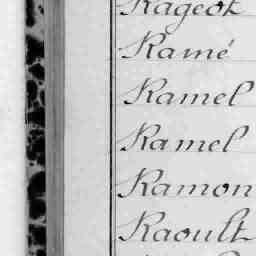 Rageot
Ramé
Ramel
Ramel
Ramon
Raoult